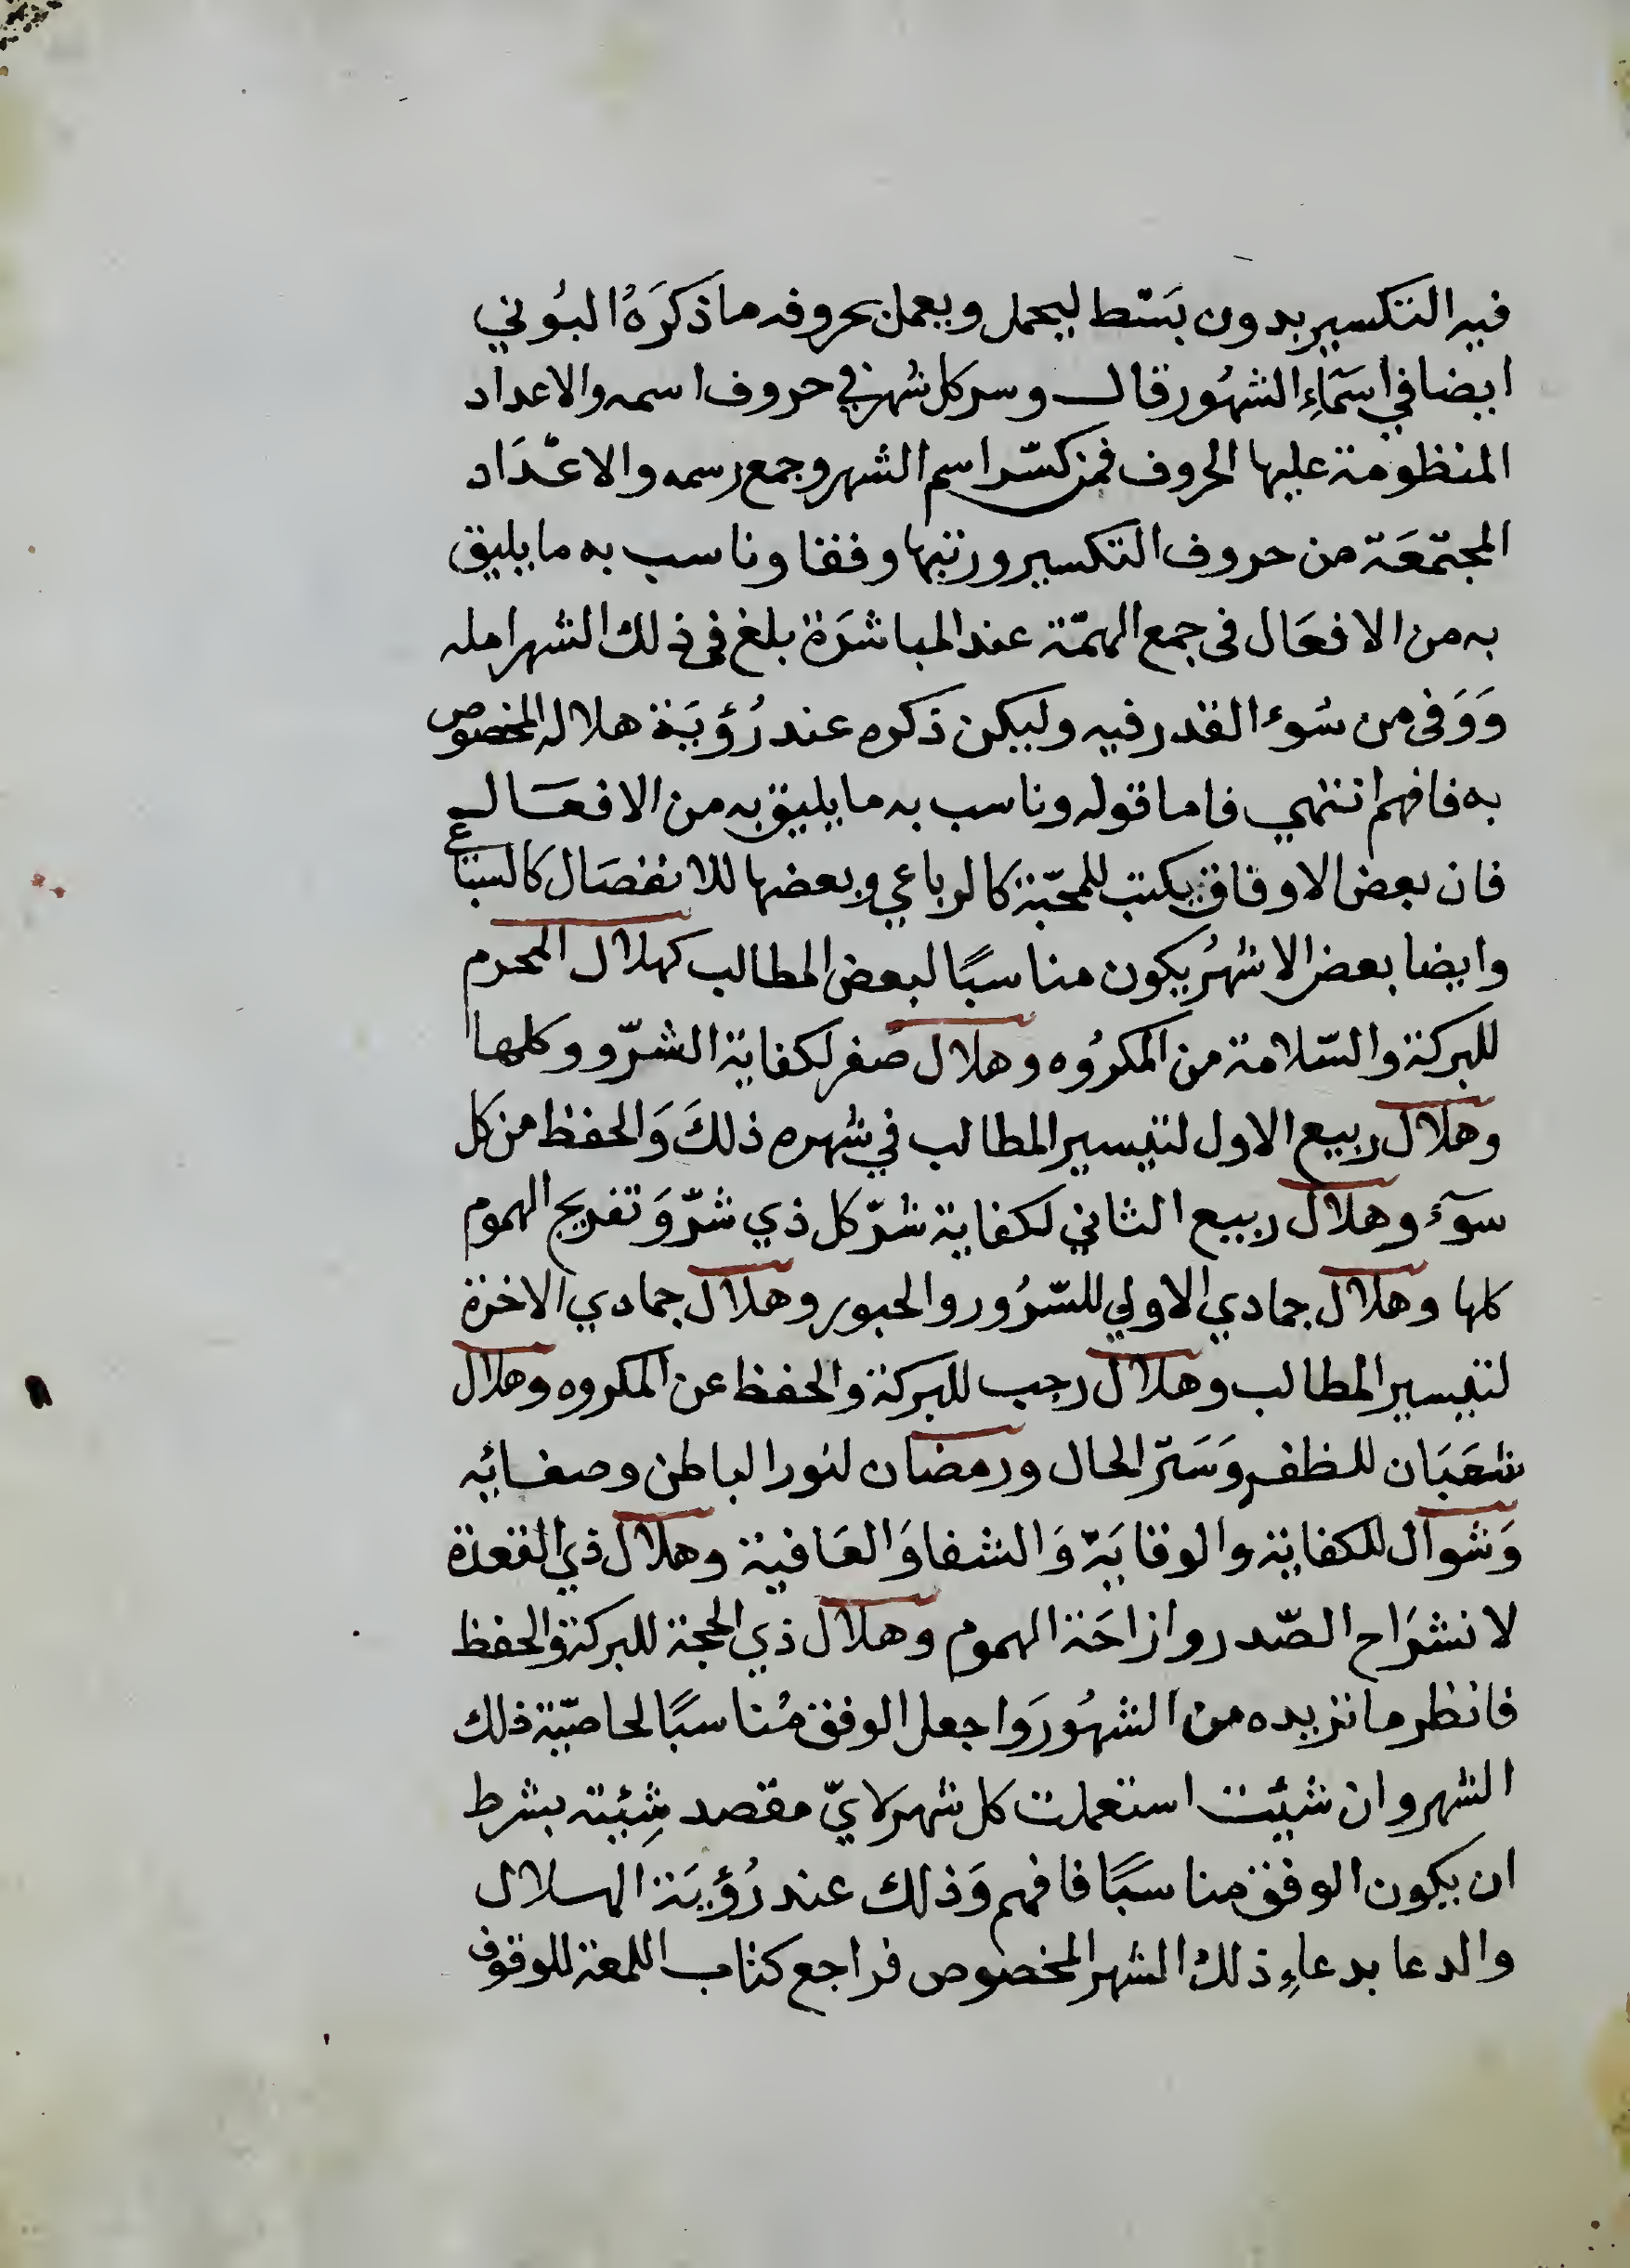 فيه التكسير بدون بَسْط ليحمل ويعمل بحروفه ما ذكَرَهُ البُوني
ايضا في اسمَاءِ الشهُور قال وسر كل شهر في حروف اسمه والاعداد
المنظومة عليها الحروف فمن كسّر اسم الشهر وجمع رسمه والاعْدَاد
المجتمَعَة من حروف التكسير ورتبها وفقا وناسب به ما يليق
به من الافعَال فى جمع الهمّة عند المباشَرَة بلغ فى ذلك الشهر امله
وَوَقى من سُوء القدر فيه وليكن ذكره عند رُؤيَة هلاله المخصوص
به فافهم انتهي فاما قوله وناسب به ما يليق به من الافعَال
فان بعض الاوفاق يكتب للمحبّة كالرباعي وبعضها للانفصَال كالسباع
وايضا بعض الاشهُر يكون مناسبًا لبعض المطالب كهلال المحرم
للبركة والسّلامة من المكرُوه وهلال صَفر لكفاية الشرّ ووكلها
وهلال ربيع الاول لتيسير المطالب في شهره ذلكَ وَالحفظ من كل
سوٓء وهلال ربيع الثاني لكفاية شرّ كل ذي شرّ وَتفريج الهموم
كلها وهلال جمادي الاولي للسّرُور والحبور وهلال جمادي الاخرة
لتيسير المطالب وهلال رجب للبركة والحفظ عن المكروه وهلال
شعَبَان للظفر وَسَتر الحال ورمضان لنور الباطن وصفائه
وَشوال للكفاية والوقايَة وَالشفا وَالعَافية وهلال ذي القعدة
لانشرَاح الصّدر وازاحَة الهموم وهلال ذي الحجة للبركة والحفظ
فانظر ما تريده من الشهُور وَاجعل الوفق مُناسبًا لخاصّية ذلك
الشهر وان شئت استعملت كل شهر لايّ مقصد شِئته بشرط
ان يكون الوفق مناسبًا فافهم وَذلك عند رُؤيَة الهلال
والدعا بدعاءِ ذلك الشهر المخصوص فراجع كتاب اللمعة للوقوف